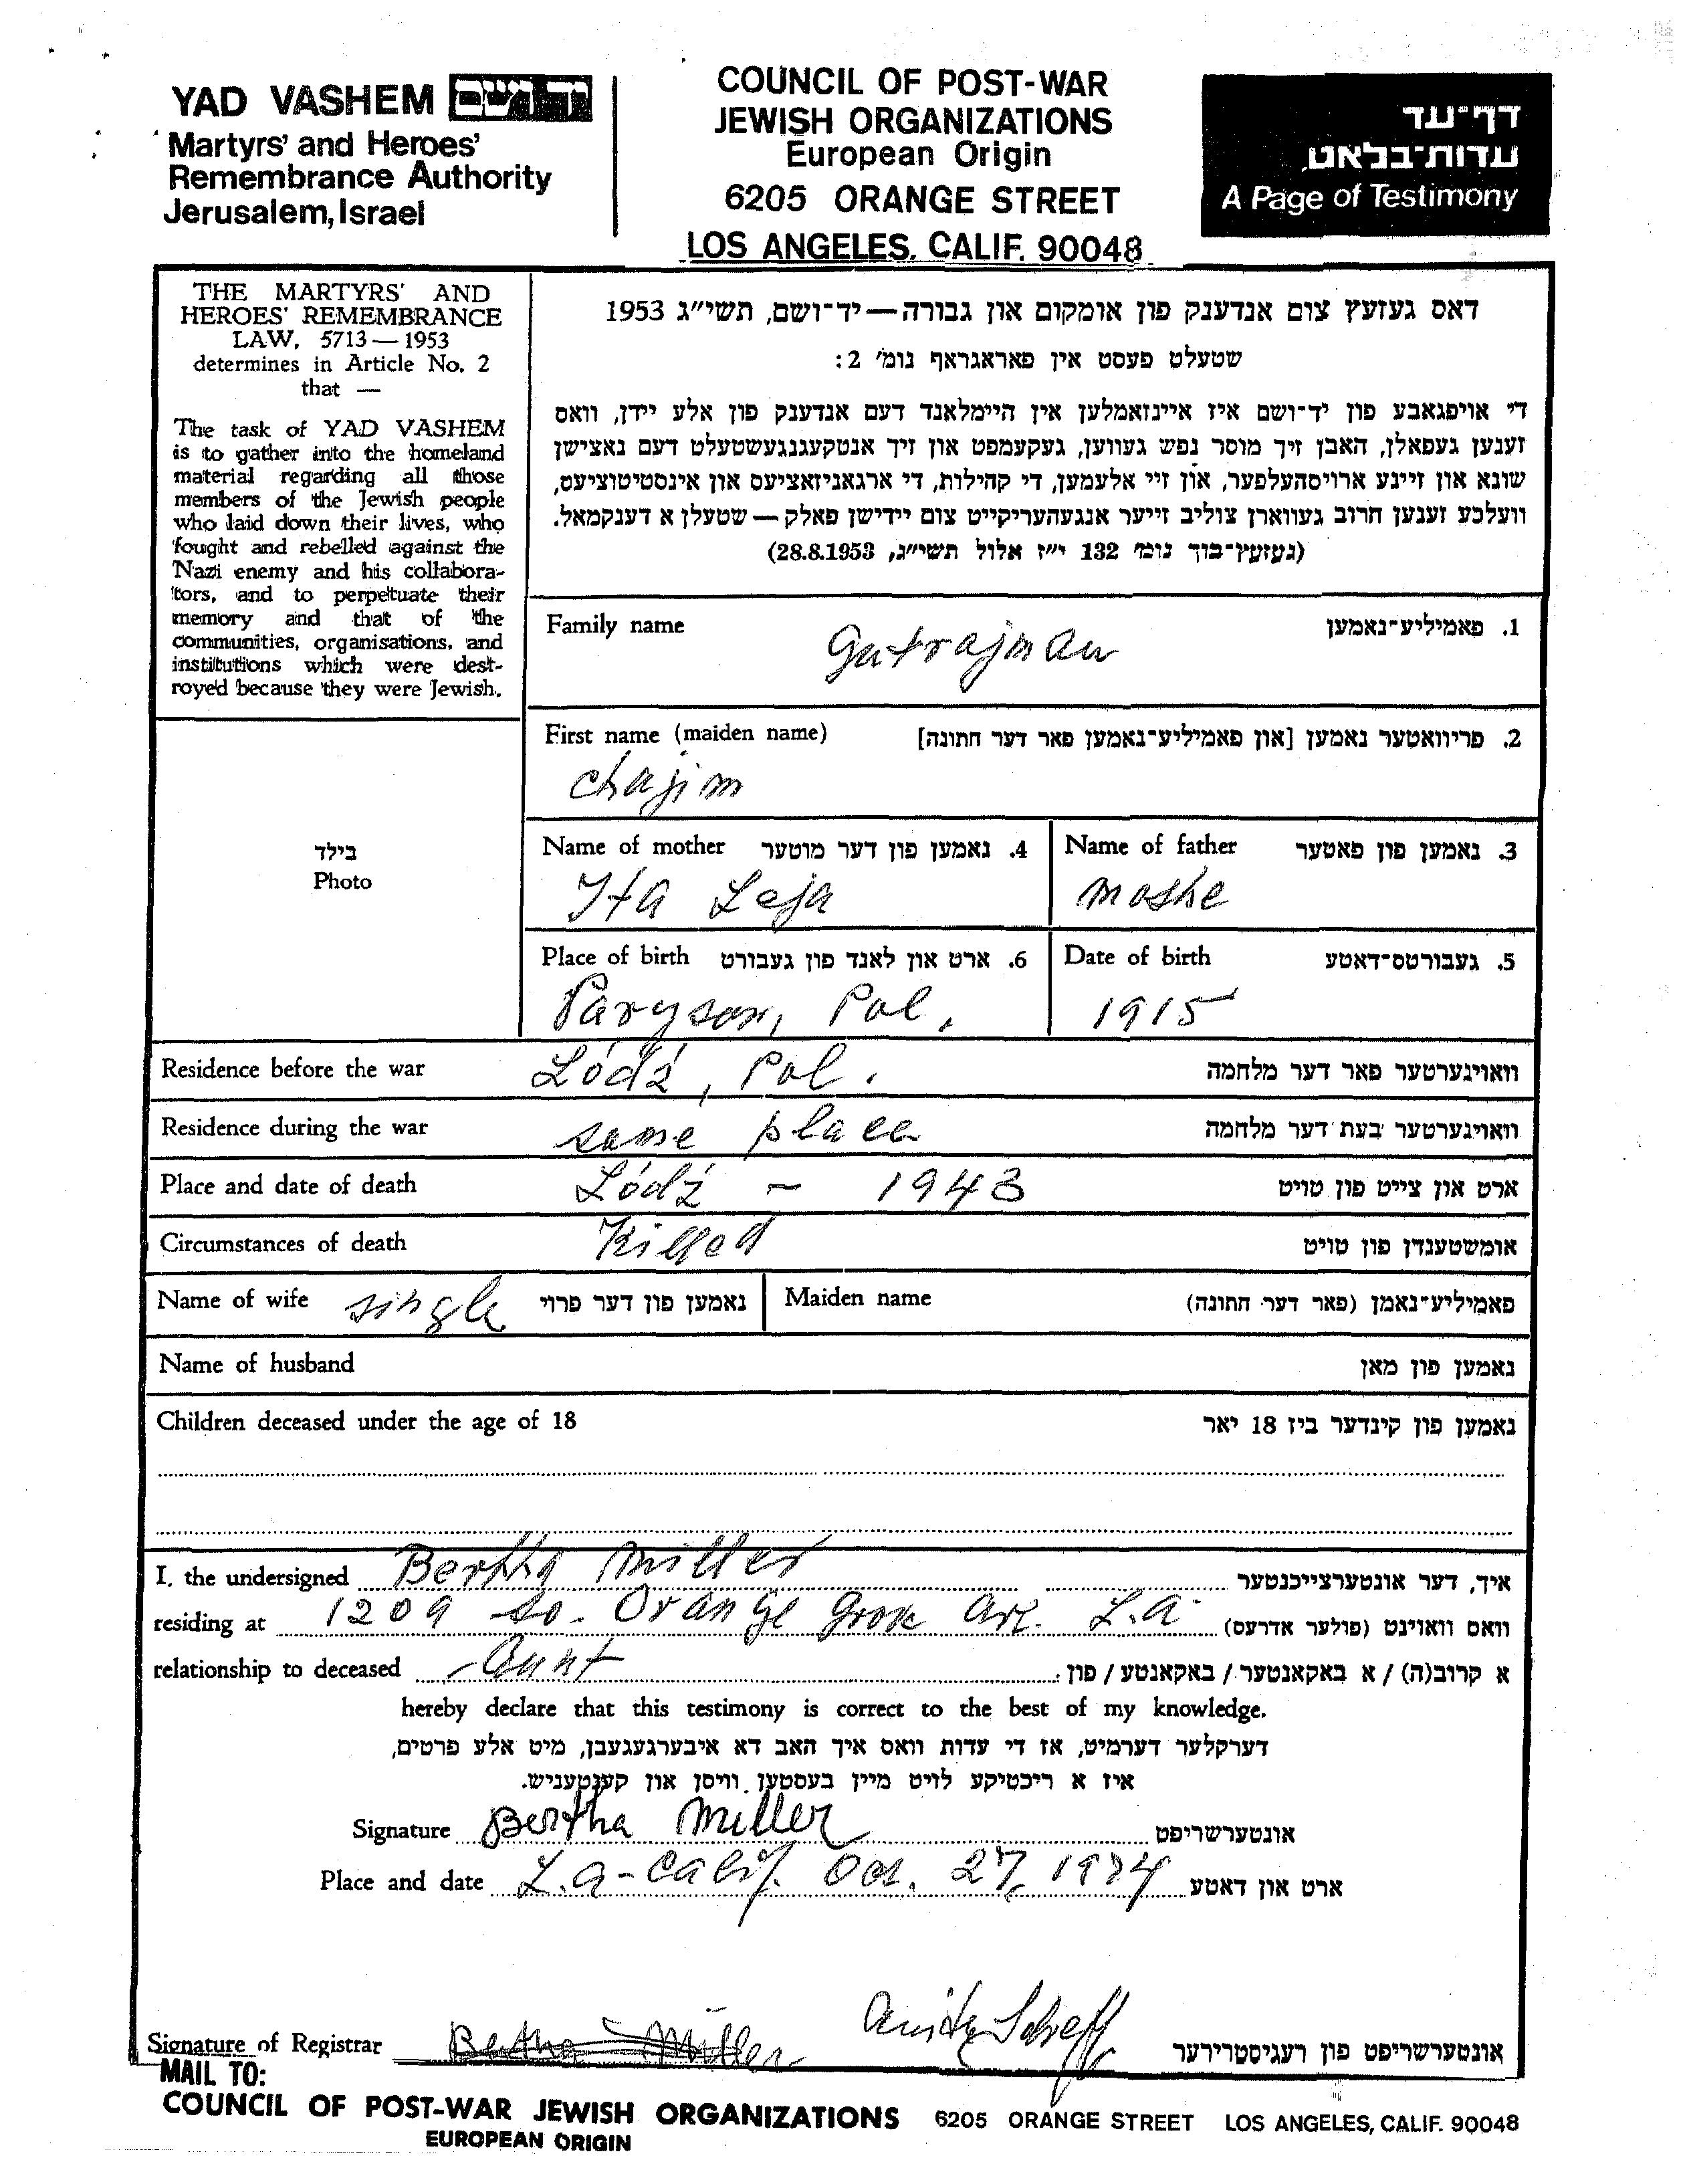 YAD VASHEM יד ושם
Martyrs' and Heroes'
Remembrance Authority
Jerusalem, Israel
COUNCIL OF POST-WAR
JEWISH ORGANIZATIONS
European Origin
6205 ORANGE STREET
LOS ANGELES, CALIF. 90048
דף־עד
עדות־בלאט
A Page of Testimony
THE MARTYRS' AND
HEROES' REMEMBRANCE
LAW, 5713—1953
determines in Article No. 2
that —
The task of YAD VASHEM
is to gather into the homeland
material regarding all those
members of the Jewish people
who laid down their lives, who
fought and rebelled against the
Nazi enemy and his collabora-
tors, and to perpetuate their
memory and that of the
communities, organisations, and
institutions which were dest-
royed because they were Jewish.
דאס געזעץ צום אנדענק פון אומקום און גבורה—יד־ושם, תשי״ג 1953
שטעלט פעסט אין פאראגראף נומ׳ 2:
די אויפגאבע פון יד־ושם איז איינזאמלען אין היימלאנד דעם אנדענק פון אלע יידן, וואס
זענען געפאלן, האבן זיך מוסר נפש געווען, געקעמפט און זיך אנטקעגנגעשטעלט דעם נאצישן
שונא און זיינע ארויסהעלפער, און זיי אלעמען, די קהילות, די ארגאניזאציעס און אינסטיטוציעס,
וועלכע זענען חרוב געווארן צוליב זייער אנגעהעריקייט צום יידישן פאלק — שטעלן א דענקמאל.
(געזעץ־בוך נומ׳ 132 י״ז אלול תשי״ג, 28.8.1953)
Family name Gutrajman 1. פאמיליע־נאמען
First name (maiden name) 2. פריוואטער נאמען [און פאמיליע־נאמען פאר דער חתונה]
Chajim
בילד
Photo
Name of mother 4. נאמען פון דער מוטער Name of father 3. נאמען פון פאטער
Ita Leja Moshe
Place of birth 6. ארט און לאנד פון געבורט Date of birth 5. געבורטס־דאטע
Paryson, Pol. 1915
Residence before the war Lódź, Pol. וואוינערטער פאר דער מלחמה
Residence during the war same place וואוינערטער בעת דער מלחמה
Place and date of death Lódź - 1943 ארט און צייט פון טויט
Circumstances of death Killed אומשטענדן פון טויט
Name of wife single נאמען פון דער פרוי Maiden name פאמיליע־נאמן (פאר דער חתונה)
Name of husband נאמען פון מאן
Children deceased under the age of 18 נאמען פון קינדער ביז 18 יאר
I, the undersigned Bertha Miller איך, דער אונטערצייכנטער
residing at 1209 So. Orange Grove Ave. L.A. וואס וואוינט (פולער אדרעס)
relationship to deceased - Aunt א קרוב(ה) / א באקאנטער / באקאנטע / פון:
hereby declare that this testimony is correct to the best of my knowledge.
דערקלער דערמיט, אז די עדות וואס איך האב דא איבערגעגעבן, מיט אלע פרטים,
איז א ריכטיקע לויט מיין בעסטען וויסן און קענטעניש.
Signature Bertha Miller אונטערשריפט
Place and date L.A-Calif. Oct. 27, 1974 ארט און דאטע
Signature of Registrar Bertha Miller אונטערשריפט פון רעגיסטרירער
MAIL TO:
COUNCIL OF POST-WAR JEWISH ORGANIZATIONS 6205 ORANGE STREET LOS ANGELES, CALIF. 90048
EUROPEAN ORIGIN